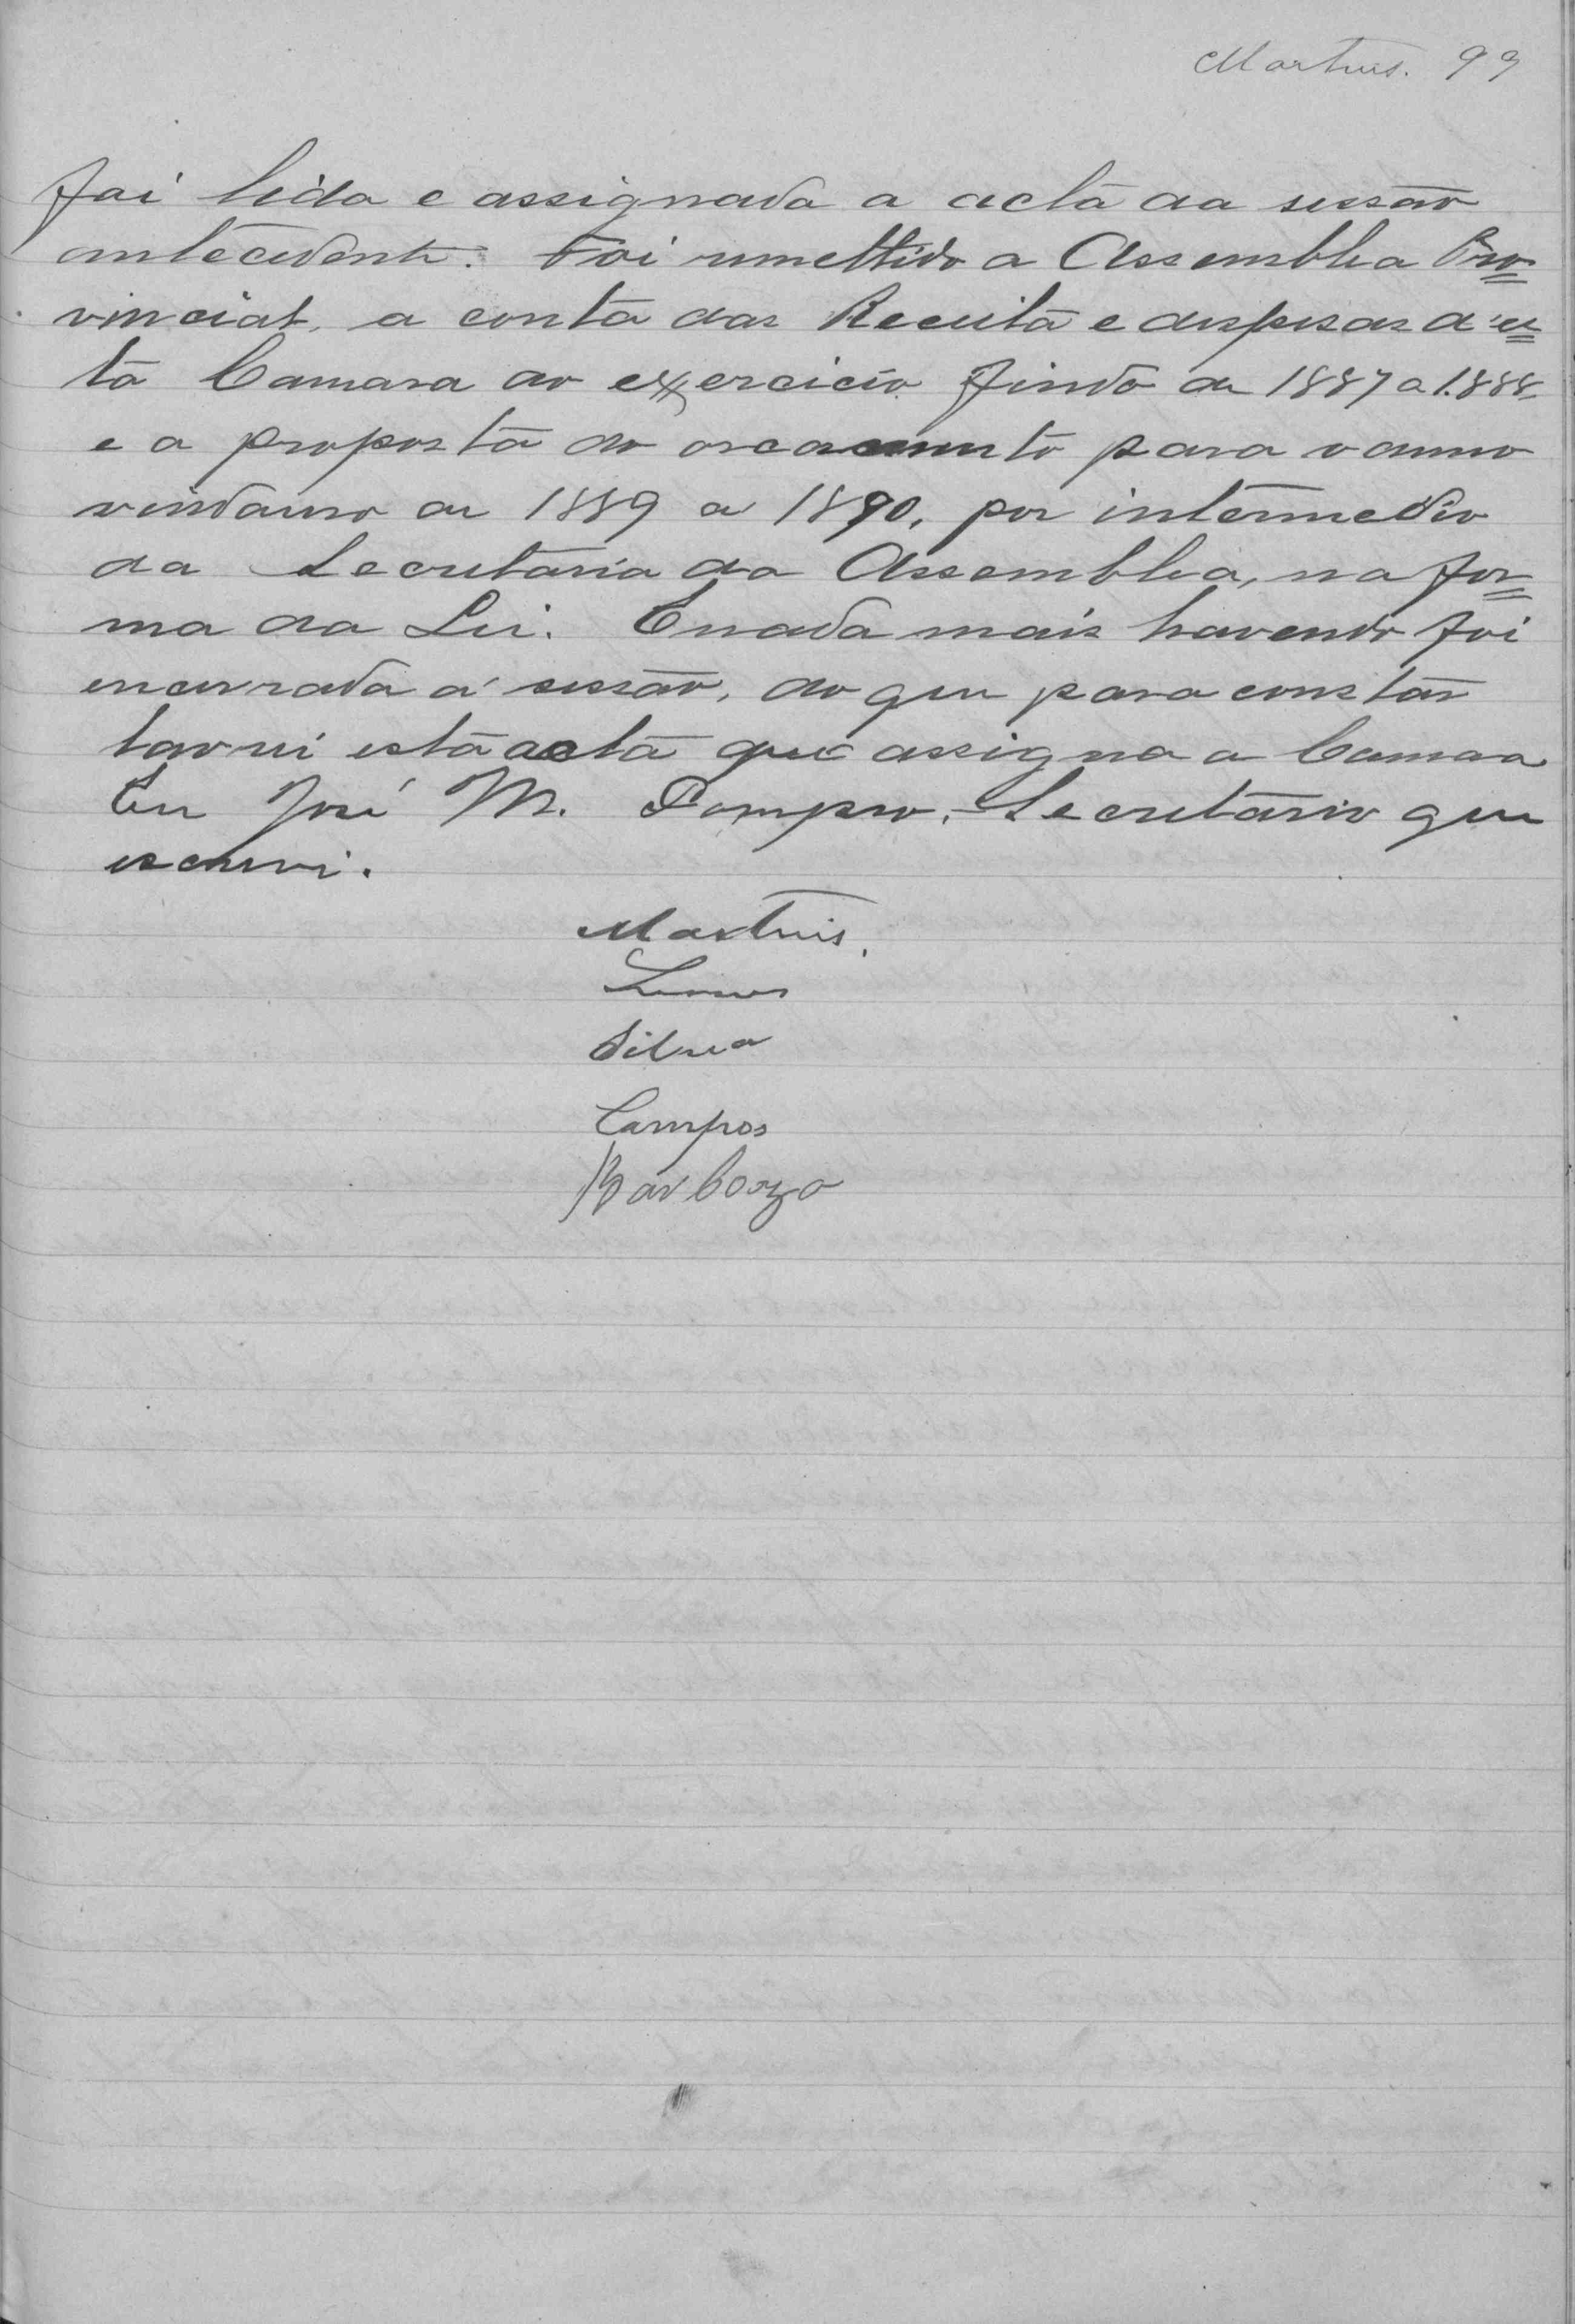 Martins. 99
foi lida e assignada a acta da sessão
antecedente. Foi remettido a Assemblea Pro=
vincial, a conta das Receita e despesas d'es=
ta Camara do exercicio findo de 1887 a 1.888,
e a proposta do orcamento para o anno
vindouro de 1889 a 1890, por intermedio
da Secretaria da Assemblea, na for=
ma da Lei. E nada mais havendo foi
encerrada a sessão, do que para constar
lavrei esta acta que assigna a Camara
Eu José M. Pompeo, Secretario que
escrevi.
Martins.
Lemos
Silva
Campos
Barboza